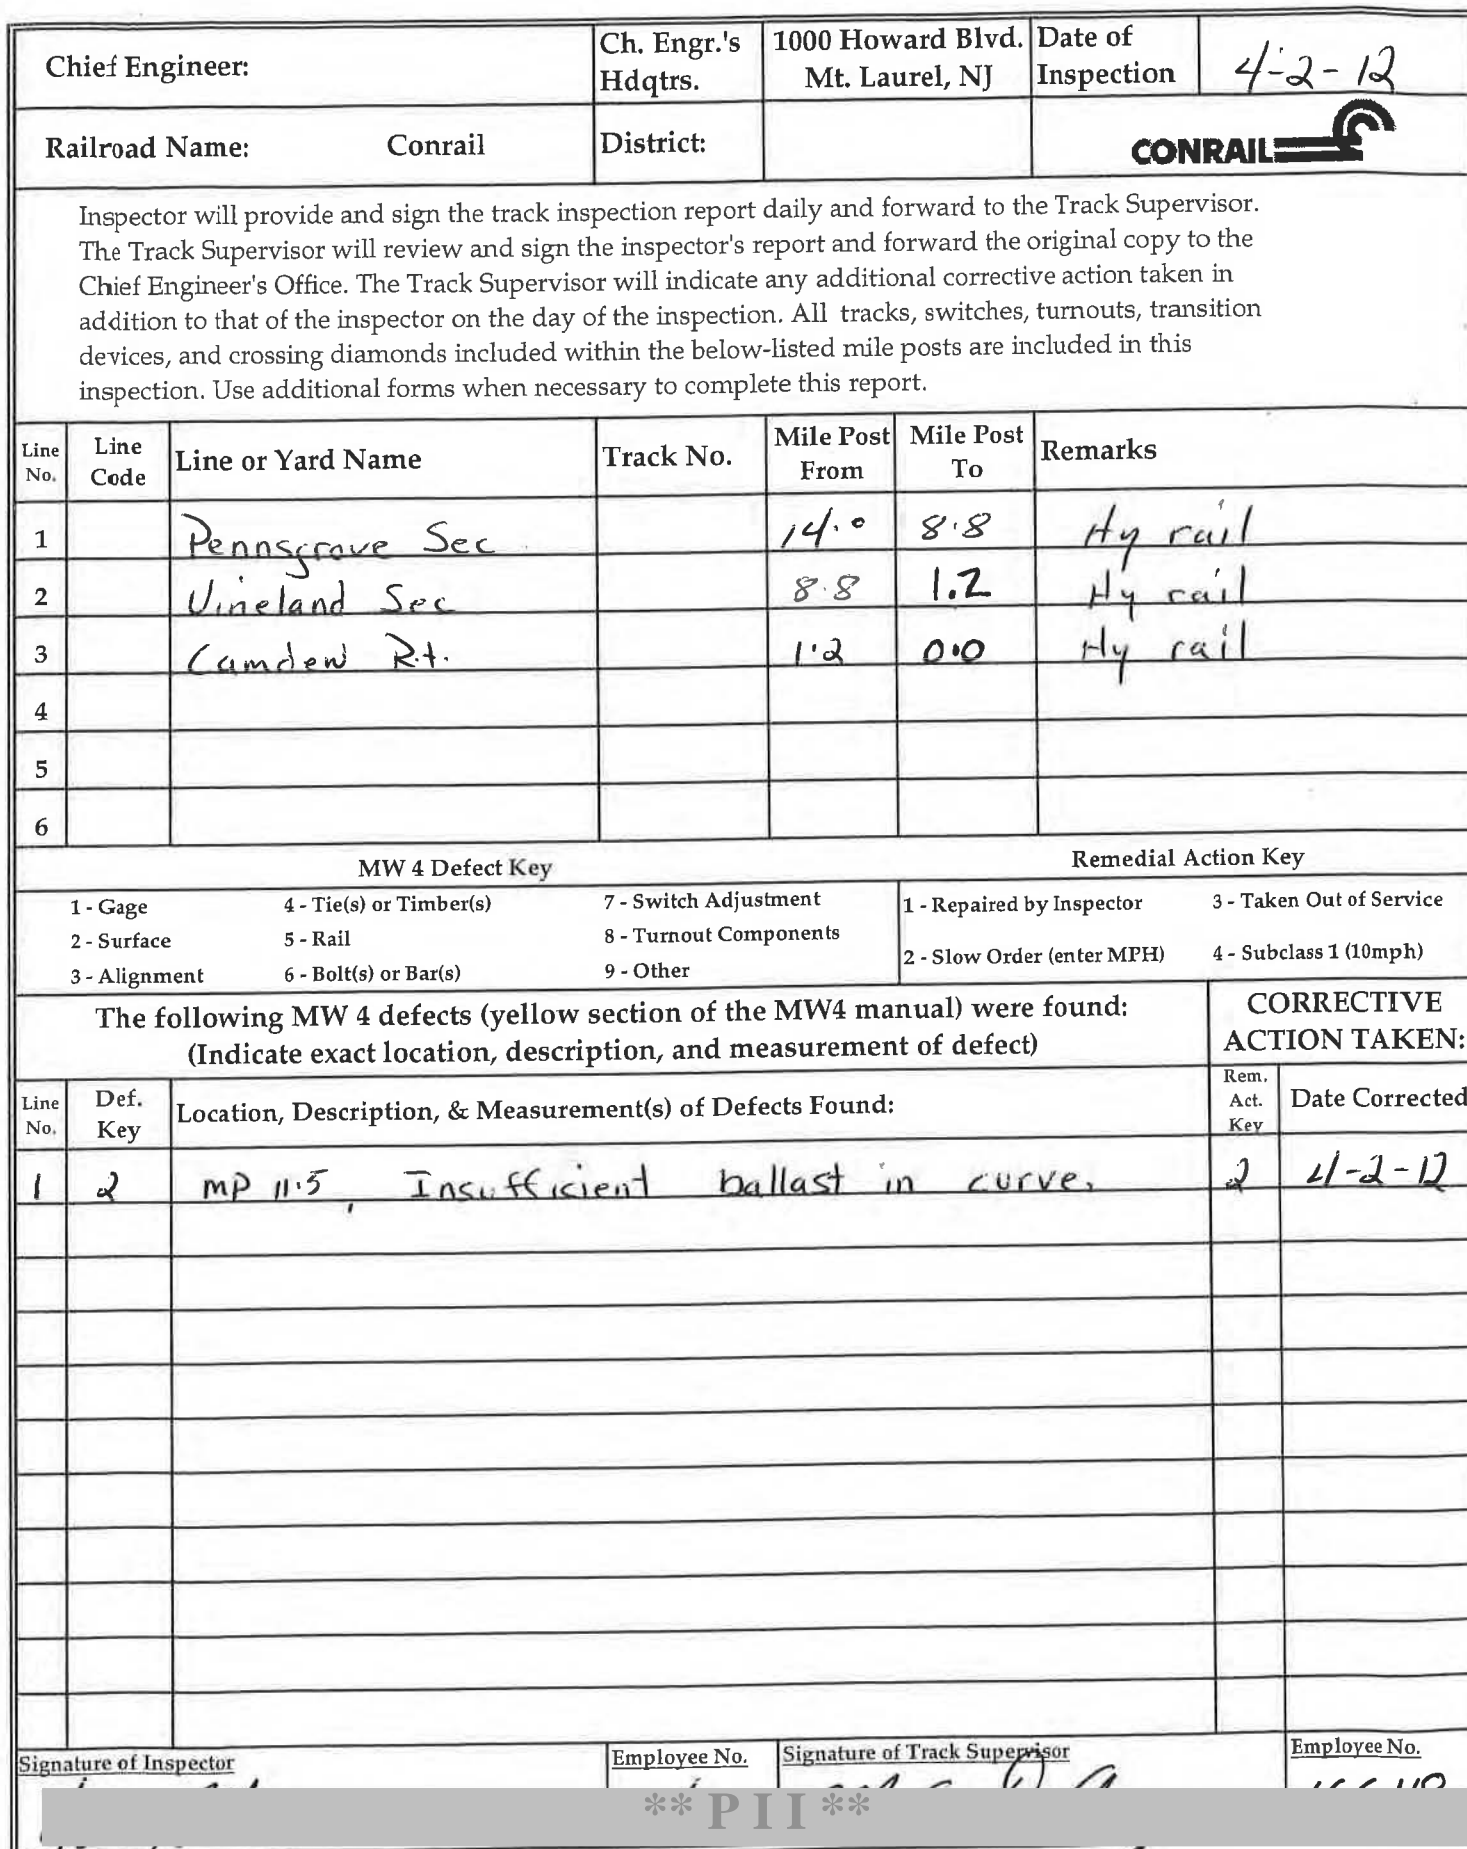 Chief Engineer:
Ch. Engr.'s Hdqtrs.
1000 Howard Blvd. Mt. Laurel, NJ
Date of Inspection
4-2-12
Railroad Name: Conrail
District:
CONRAIL
Inspector will provide and sign the track inspection report daily and forward to the Track Supervisor.
The Track Supervisor will review and sign the inspector's report and forward the original copy to the
Chief Engineer's Office. The Track Supervisor will indicate any additional corrective action taken in
addition to that of the inspector on the day of the inspection. All tracks, switches, turnouts, transition
devices, and crossing diamonds included within the below-listed mile posts are included in this
inspection. Use additional forms when necessary to complete this report.
Line No. Line Code Line or Yard Name Track No. Mile Post From Mile Post To Remarks
1 Pennsgrove Sec 14.0 8.8 Hy rail
2 Vineland Sec 8.8 1.2 Hy rail
3 Camden R.t. 1.2 0.0 Hy rail
4
5
6
MW 4 Defect Key Remedial Action Key
1 - Gage 4 - Tie(s) or Timber(s) 7 - Switch Adjustment 1 - Repaired by Inspector 3 - Taken Out of Service
2 - Surface 5 - Rail 8 - Turnout Components 2 - Slow Order (enter MPH) 4 - Subclass 1 (10mph)
3 - Alignment 6 - Bolt(s) or Bar(s) 9 - Other
The following MW 4 defects (yellow section of the MW4 manual) were found:
(Indicate exact location, description, and measurement of defect)
CORRECTIVE
ACTION TAKEN:
Line No. Def. Key Location, Description, & Measurement(s) of Defects Found: Rem. Act. Key Date Corrected
1 2 MP 11.5, Insufficient ballast in curve. 2 4-2-12
Signature of Inspector Employee No. Signature of Track Supervisor Employee No.
** P I I **